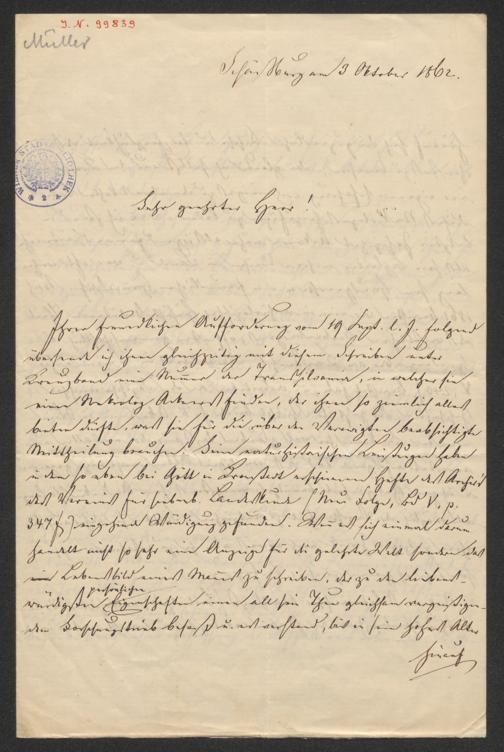 I. N. 99839
Müller
Schäßburg am 3 Oktober 1862.
WIENER STADTBIBLIOTHEK
Sehr geehrter Herr!
Ihrer freundlichen Aufforderung vom 19 Sept. l. J. folgend
übersende ich ihnen gleichzeitig mit diesem Schreiben unter
Kreuzband eine Numer der Transsilvania, in welcher sie
einen Nekrolog Ackners finden, der ihnen so ziemlich alles
bieten dürfte, was sie für die über den Verewigten beabsichtigte
Mittheilung brauchen. Seine naturhistorischen Leistungen haben
in dem so eben bei Gött in Kronstadt erschienenen Hefte des Archivs
des Vereins für siebenb. Landeskunde (Neue Folge, Bd V, p.
347 f.) eingehende Würdigung gefunden. Wenn es sich einmal darum
handelt nicht so sehr eine Anzeige für die gelehrte Welt sondern das
ein Lebensbild eines Mannes zu schreiben, der zu den liebens-
persönlichen
würdigsten Eigenschaften einen all sein Thun gleichsam
den Forschungstrieb besaß u. es verstand, bis in sein hohes Alter
hinauf